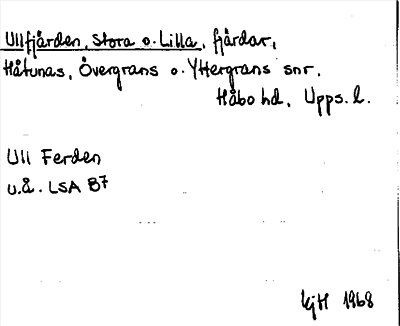 Ullfjärden, Stora o. Lilla, fjärdar,
Håtunas, Övergrans o. Yttergrans snr,
Håbo hd, Upps. l.
Ull Ferden
u.å. LSA B7
KjH 1968